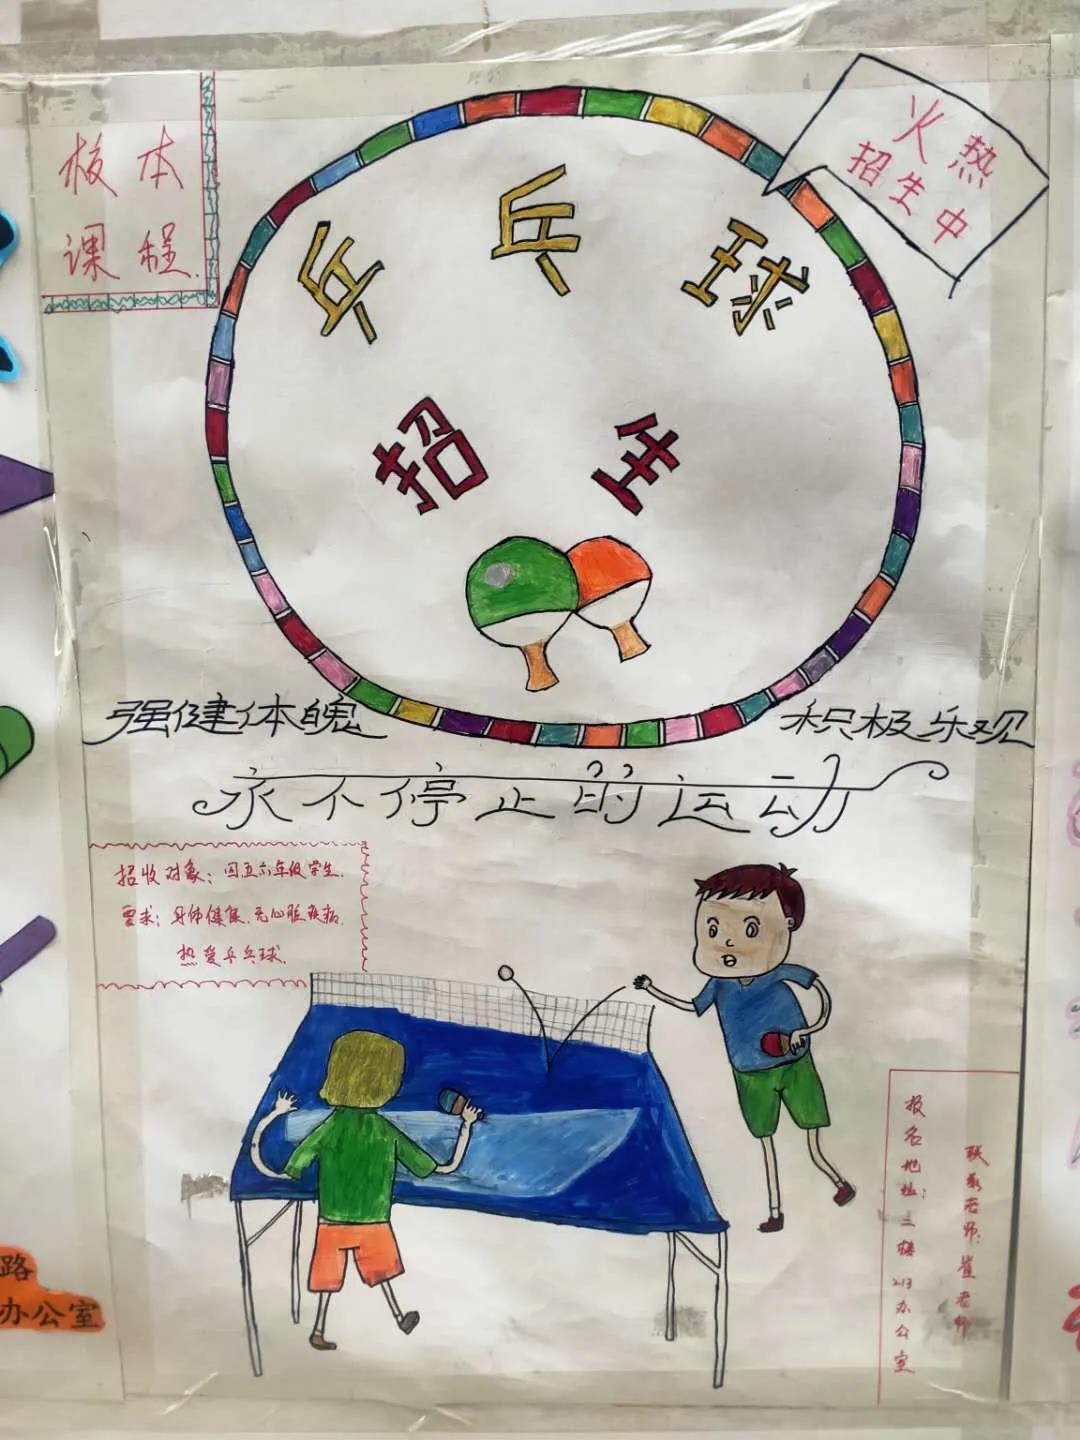 校本
课程
火热
招生中
乒乓球
招生
强健体魄
积极乐观
永不停止的运动
招收对象：四五六年级学生.
要求：身体健康.无心脏疾病.
热爱乒乓球.
报名地址：二楼213办公室
联系老师：崔老师
路
办公室